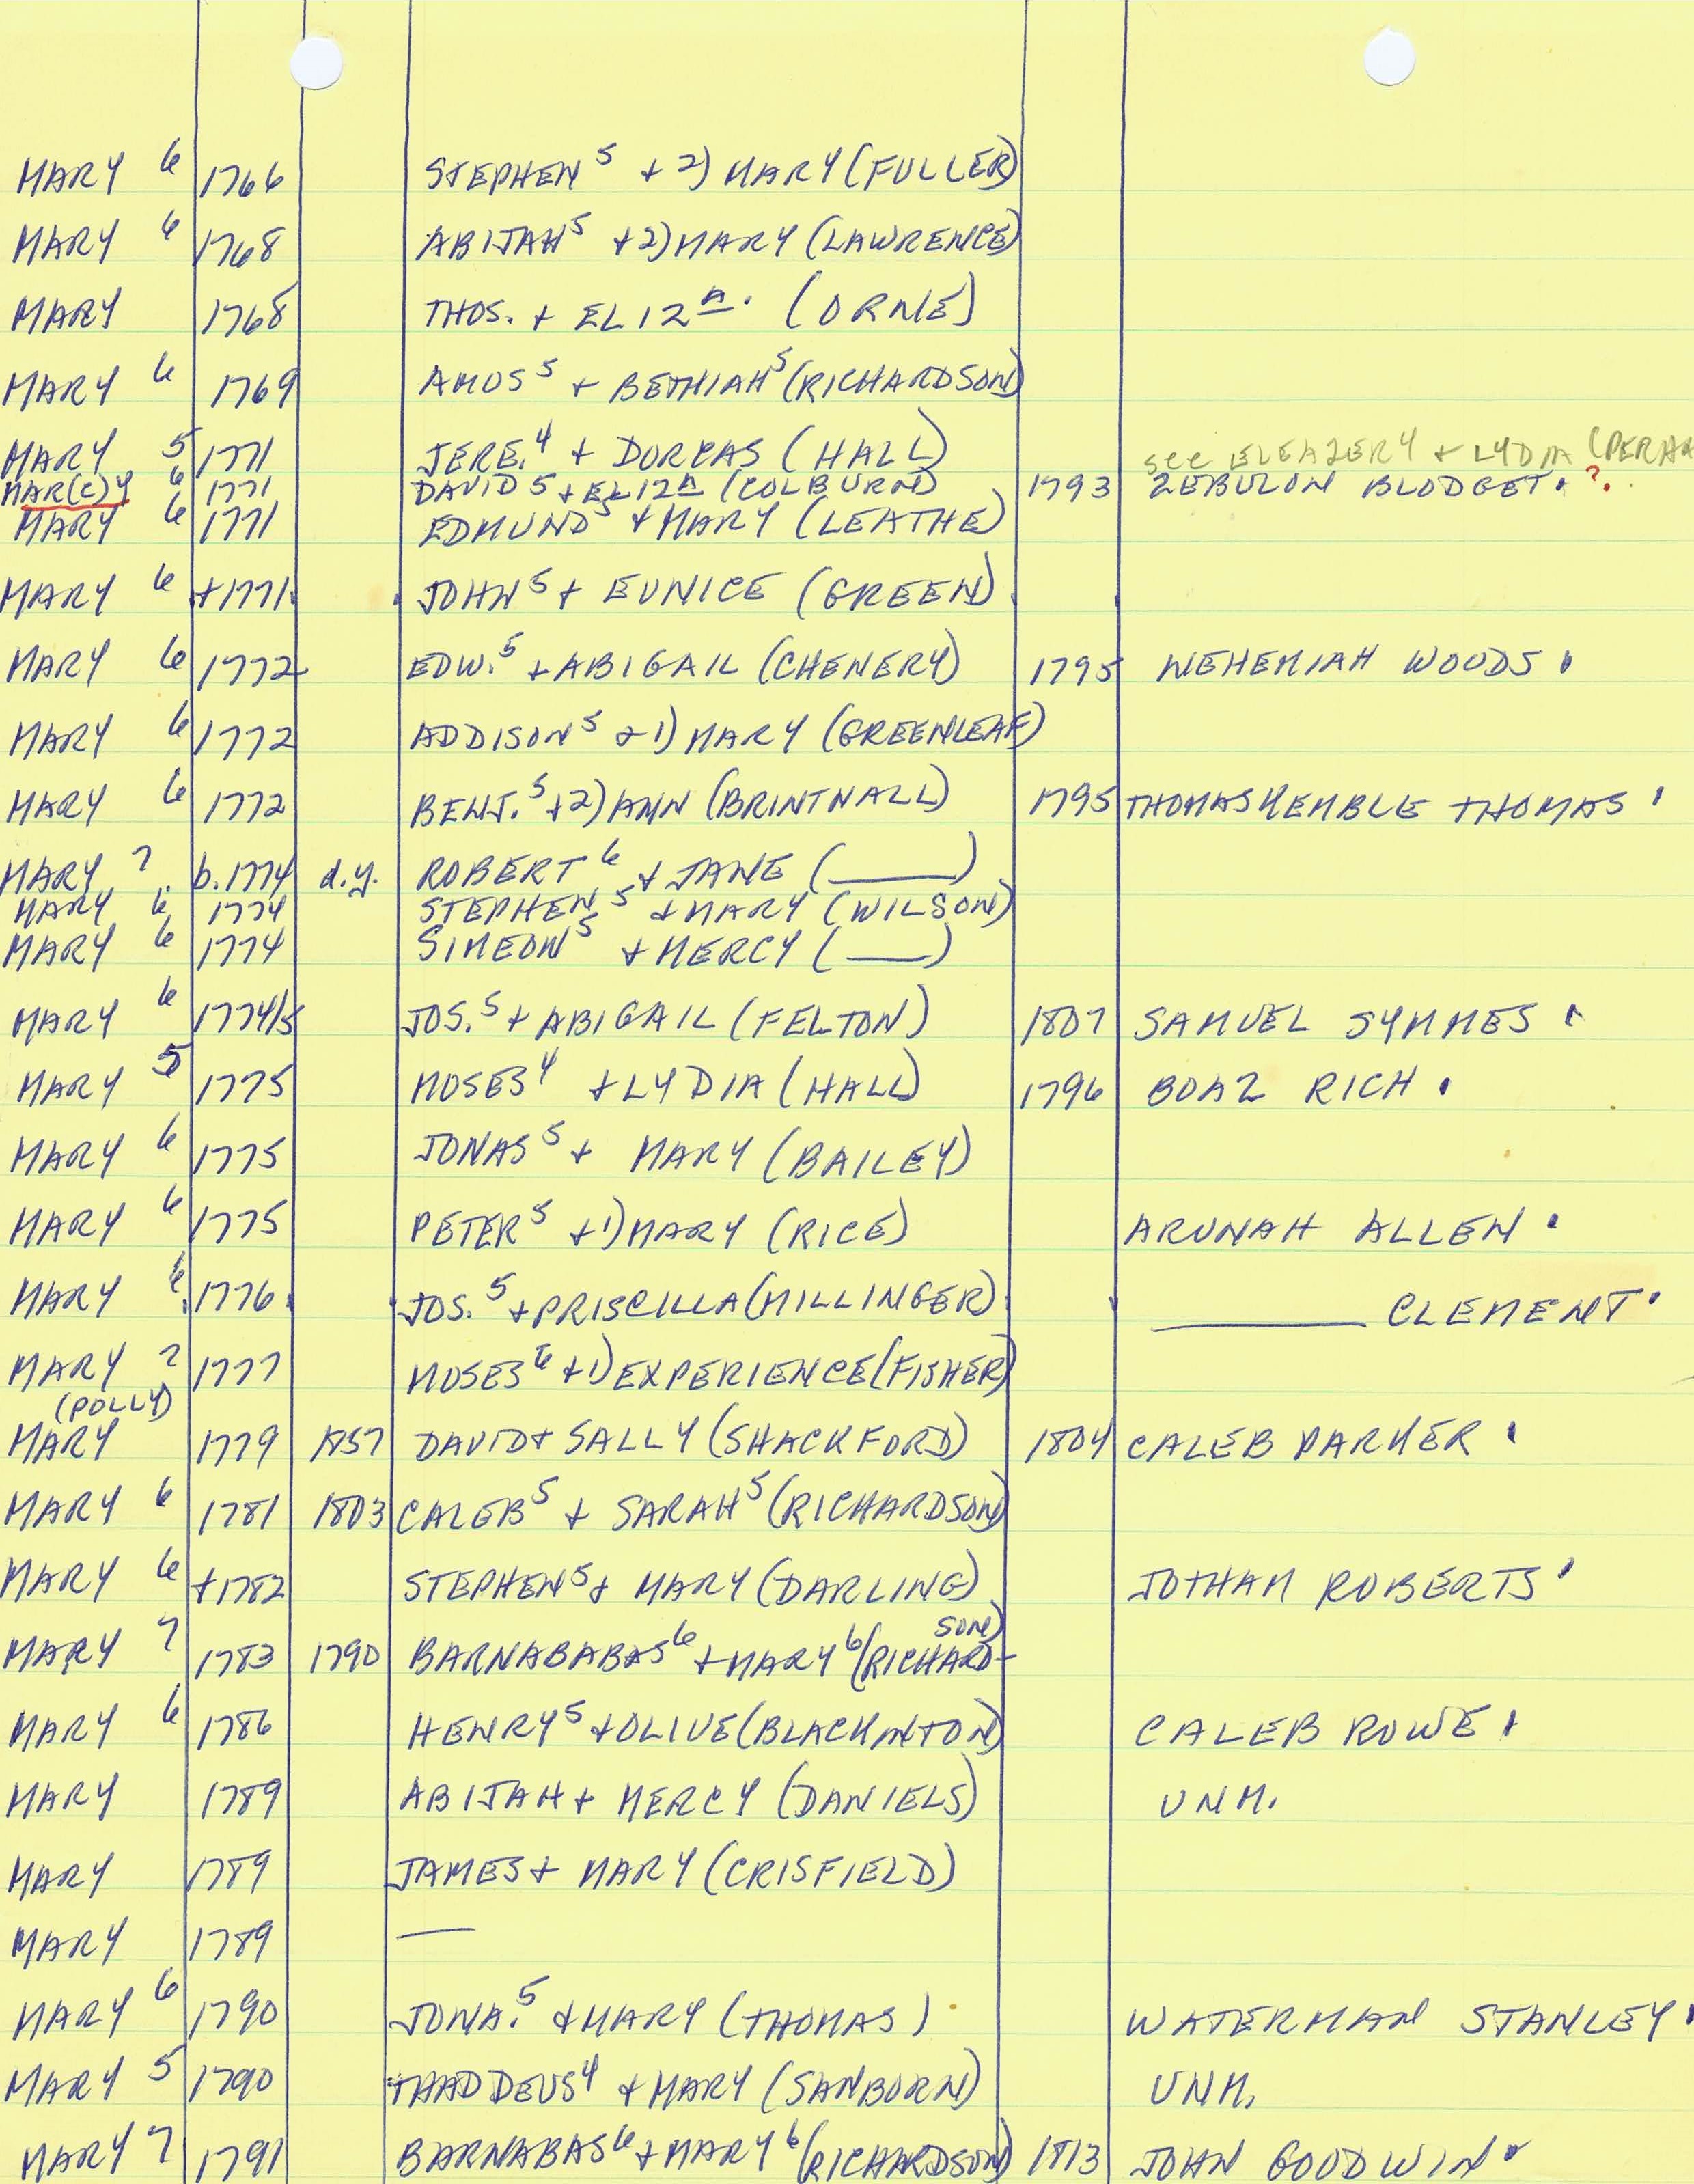 MARY 6 1766 STEPHEN 5 + 2) MARY (FULLER)
MARY 6 1768 ABIJAH 5 + 2) MARY (LAWRENCE)
MARY 1768 THOS. + ELIZA. (ORNE)
MARY 6 1769 AMOS 5 + BETHIAH 5 (RICHARDSON)
MARY 5 1771 JERE. 4 + DORCAS (HALL) see ELEAZER 4 + LYDIA
MAR(C)Y 6 1771 DAVID 5 + ELIZA (COLBURN) 1793 ZEBULON BLODGET. ?.
MARY 6 1771 EDMUND 5 + MARY (LEATHE)
MARY 6 +1771 JOHN 5 + EUNICE (GREEN)
MARY 6 1772 EDW. 5 + ABIGAIL (CHENERY) 1795 NEHEMIAH WOODS.
MARY 6 1772 ADDISON 5 + 1) MARY (GREENLEAF)
MARY 6 1772 BENJ. 5 + 2) ANN (BRINTNALL) 1795 THOMAS KEMBLE THOMAS.
MARY 7 b. 1774 d.y. ROBERT 6 + JANE (____)
MARY 6 1774 STEPHEN 5 + MARY (WILSON)
MARY 6 1774 SIMEON 5 + MERCY (____)
MARY 6 1774/5 JOS. 5 + ABIGAIL (FELTON) 1807 SAMUEL SYMMES.
MARY 5 1775 MOSES 4 + LYDIA (HALL) 1796 BOAZ RICH.
MARY 6 1775 JONAS 5 + MARY (BAILEY)
MARY 6 1775 PETER 5 + 1) MARY (RICE) ARUNAH ALLEN.
MARY 6 1776 JOS. 5 + PRISCILLA (MILLINGER) ____ CLEMENT.
MARY 7 1777 MOSES 6 + 1) EXPERIENCE (FISHER)
(POLLY)
MARY 1779 1857 DAVID + SALLY (SHACKFORD) 1804 CALEB PARKER.
MARY 6 1781 1803 CALEB 5 + SARAH 5 (RICHARDSON)
MARY 6 +1782 STEPHEN 5 + MARY (DARLING) JOTHAM ROBERTS.
MARY 7 1783 1790 BARNABABAS 6 + MARY 6 (RICHARD-
SON)
MARY 6 1786 HENRY 5 + OLIVE (BLACKINTON) CALEB ROWE.
MARY 1789 ABIJAH + MERCY (DANIELS) UNM.
MARY 1789 JAMES + MARY (CRISFIELD)
MARY 1789 —
MARY 6 1790 JONA. 5 + MARY (THOMAS) WATERMAN STANLEY.
MARY 5 1790 THADDEUS 4 + MARY (SANBORN) UNM.
MARY 7 1791 BARNABAS 6 + MARY 6 (RICHARDSON) 1813 JOHN GOODWIN.